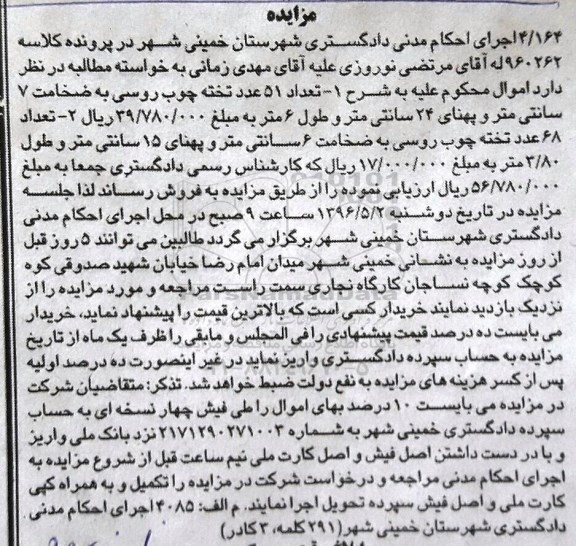 مزایده
۴/۱۶۴اجرای احکام مدنی دادگستری شهرستان خمینی شهر در پرونده کلاسه
۹۶۰۲۶۲له آقای مرتضی نوروزی علیه آقای مهدی زمانی به خواسته مطالبه در نظر
دارد اموال محکوم علیه به شرح ۱-تعداد ۵۱ عدد تخته چوب روسی به ضخامت ۷
سانتی متر و پهنای ۲۴ سانتی متر و طول ۶ متر به مبلغ ۳۹/۷۸۰/۰۰۰ ریال ۲-تعداد
۶۸ عدد تخته چوب روسی به ضخامت ۶ سانتی متر و پهنای ۱۵ سانتی متر و طول
۳/۸۰ متر به مبلغ ۱۷/۰۰۰/۰۰۰ ریال که کارشناس رسمی دادگستری جمعا به مبلغ
۵۶/۷۸۰/۰۰۰ ریال ارزیابی نموده را از طریق مزایده به فروش رساند لذا جلسه
مزایده در تاریخ دوشنبه ۱۳۹۶/۵/۲ ساعت ۹ صبح در محل اجرای احکام مدنی
دادگستری شهرستان خمینی شهر برگزار می گردد طالبین می توانند ۵ روز قبل
از روز مزایده به نشانی خمینی شهر میدان امام رضا خیابان شهید صدوقی کوه
کوچک کوچه نساجان کارگاه نجاری سمت راست مراجعه و مورد مزایده را از
نزدیک بازدید نمایند خریدار کسی است که بالاترین قیمت را پیشنهاد نماید، خریدار
می بایست ده درصد قیمت پیشنهادی را فی المجلس و مابقی را ظرف یک ماه از تاریخ
مزایده به حساب سپرده دادگستری واریز نماید در غیر اینصورت ده درصد اولیه
پس از کسر هزینه های مزایده به نفع دولت ضبط خواهد شد. تذکر: متقاضیان شرکت
در مزایده می بایست ۱۰ درصد بهای اموال را طی فیش چهار نسخه ای به حساب
سپرده دادگستری خمینی شهر به شماره ۲۱۷۱۲۹۰۲۷۱۰۰۳ نزد بانک ملی واریز
و با در دست داشتن اصل فیش و اصل کارت ملی نیم ساعت قبل از شروع مزایده به
اجرای احکام مدنی مراجعه و درخواست شرکت در مزایده را تکمیل و به همراه کپی
کارت ملی و اصل فیش سپرده تحویل اجرا نمایند. م الف: ۴۰۸۵ اجرای احکام مدنی
دادگستری شهرستان خمینی شهر(۲۹۱ کلمه، ۳ کادر)
ParsNamadData